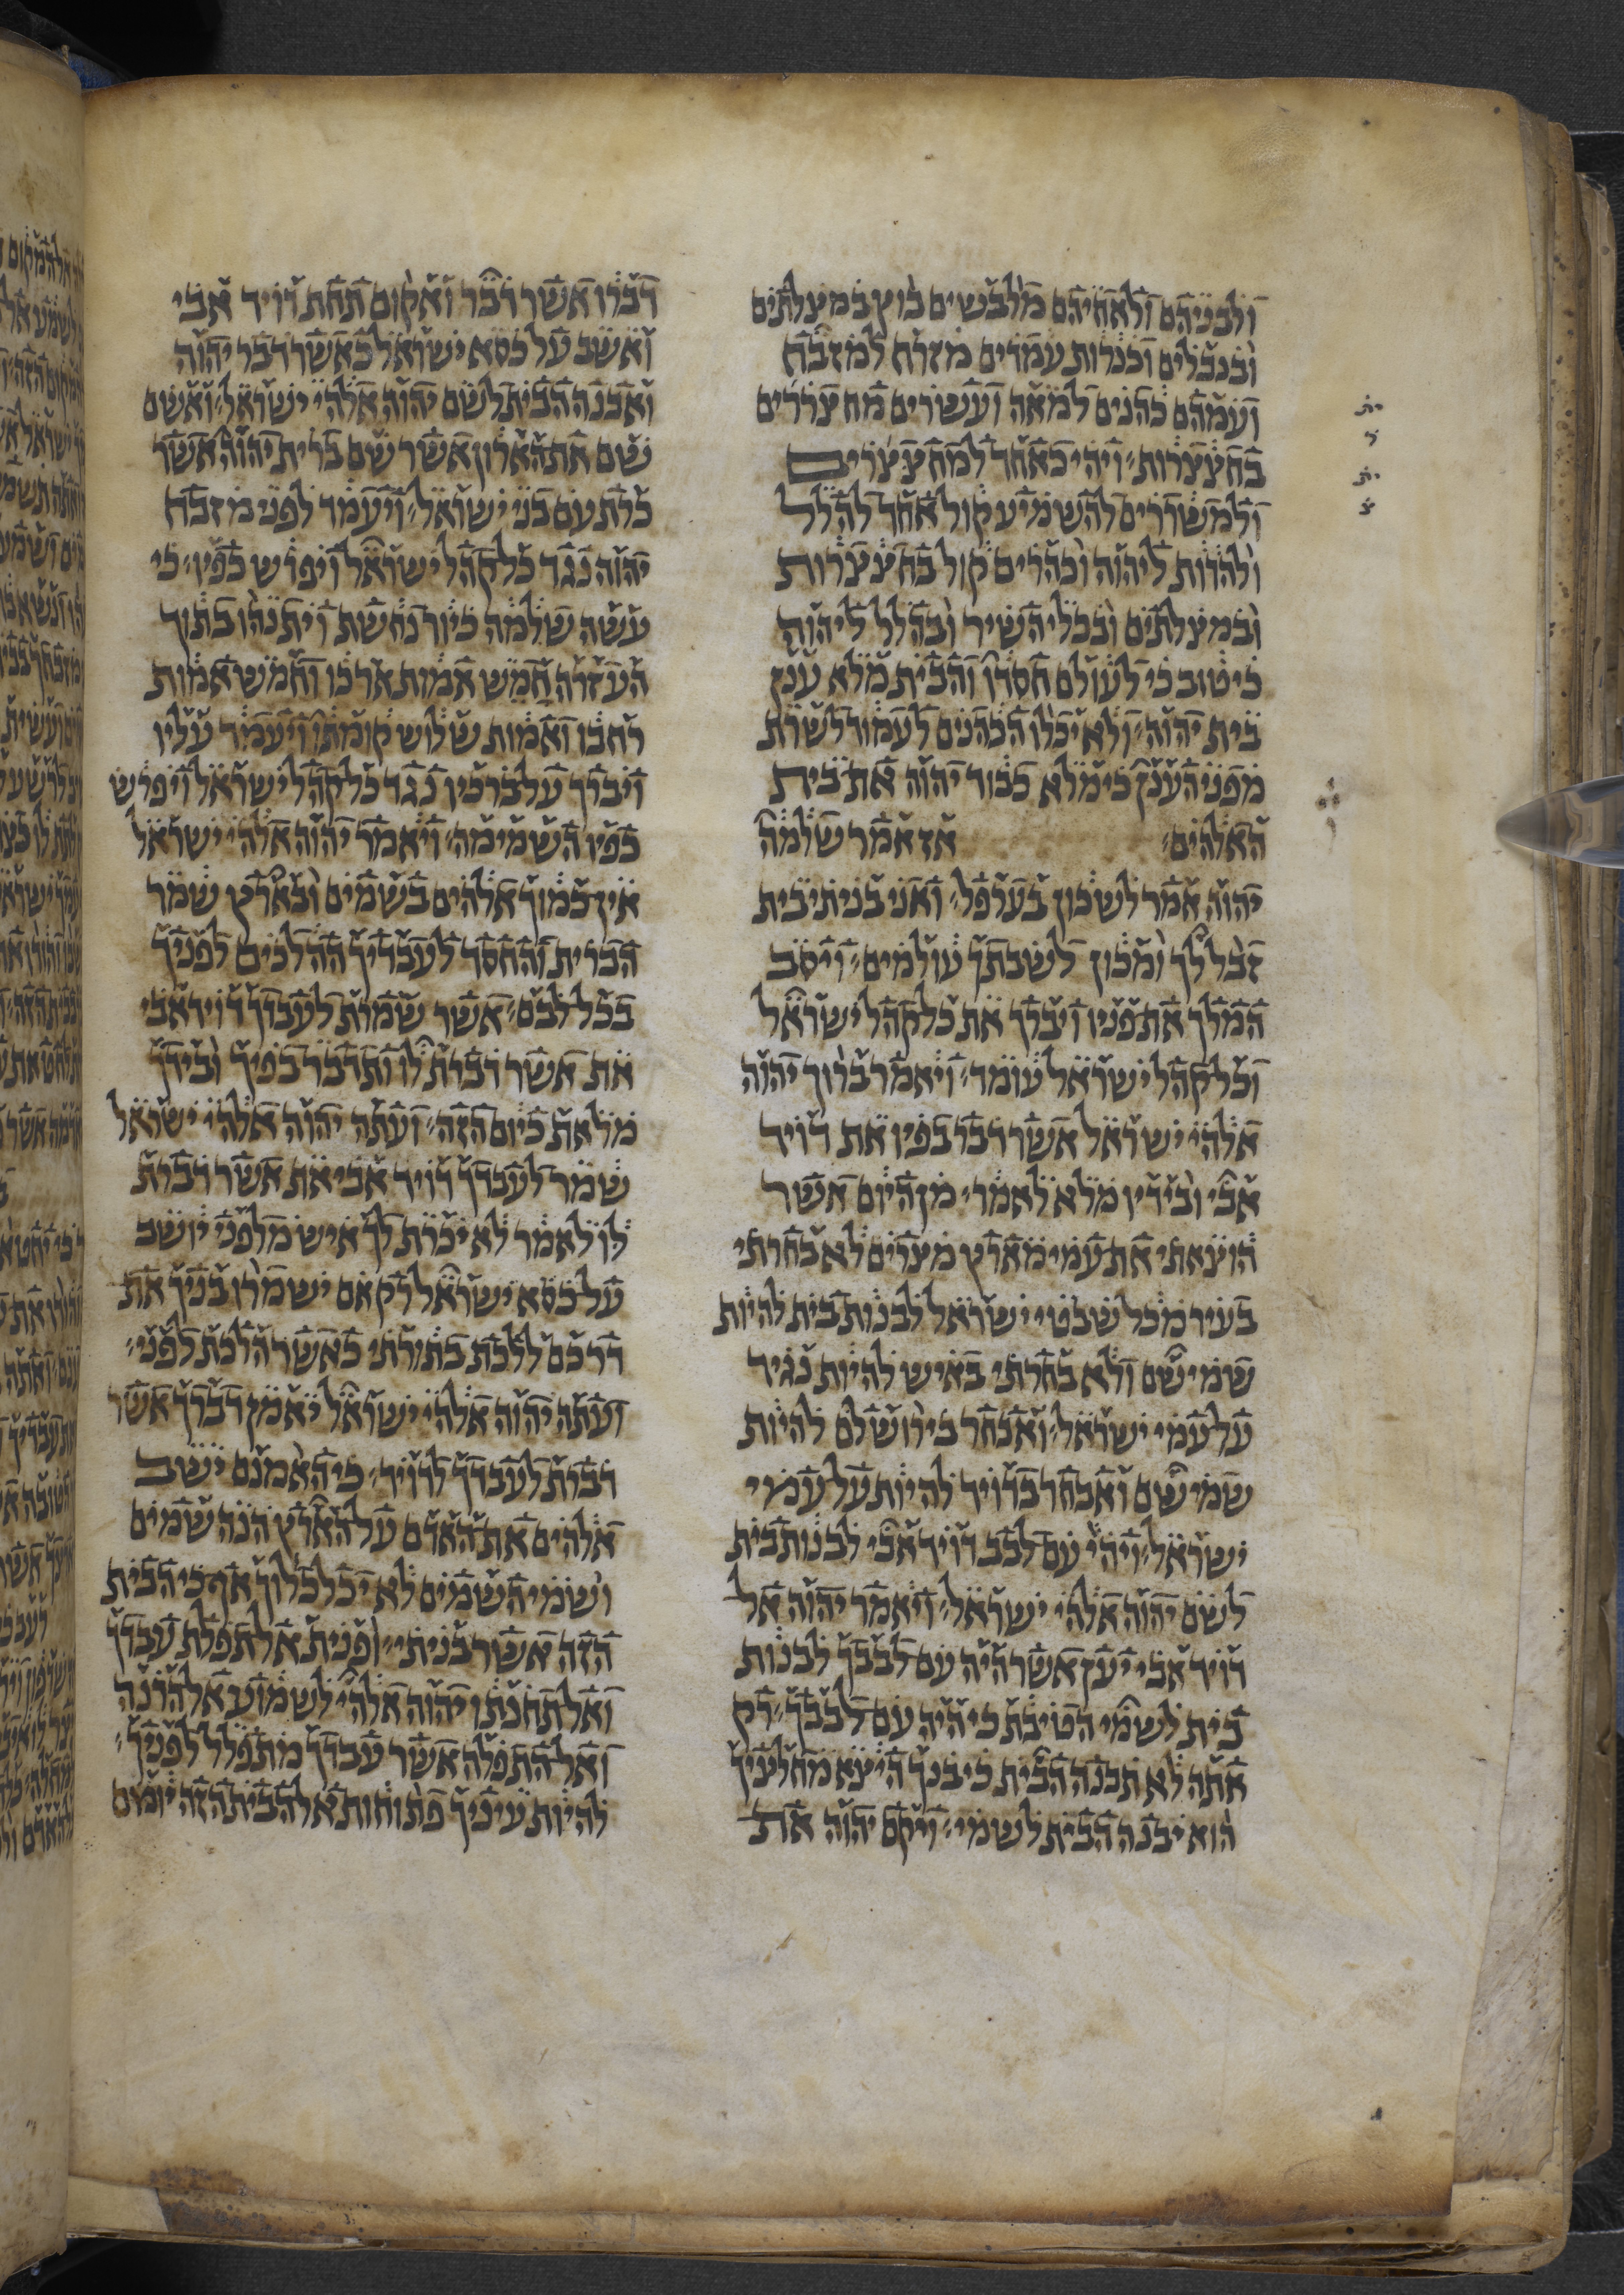 ולבניהם ולאחיהם מלבשים בוץ במצלתים
ובנבלים וכנרות עמדים מזרח למזבח
ועמהם כהנים למאה ועשרים מחצררים
בחצצרות׃ ויהי כאחד למחצצרים
ולמשררים להשמיע קול אחד להלל
ולהדות ליהוה וכהרים קול בחצצרות
ובמצלתים ובכלי השיר ובהלל ליהוה
כי טוב כי לעולם חסדו והבית מלא ענן
בית יהוה׃ ולא יכלו הכהנים לעמוד לשרת
מפני הענן כי מלא כבוד יהוה את בית
האלהים׃ אז אמר שלמה
יהוה אמר לשכון בערפל׃ ואני בניתי בית
זבל לך ומכון לשבתך עולמים׃ ויסב
המלך את פניו ויברך את כל קהל ישראל
וכל קהל ישראל עומד׃ ויאמר ברוך יהוה
אלהי ישראל אשר דבר בפיו את דויד
אבי ובידיו מלא לאמר׃ מן היום אשר
הוצאתי את עמי מארץ מצרים לא בחרתי
בעיר מכל שבטי ישראל לבנות בית להיות
שמי שם ולא בחרתי באיש להיות נגיד
על עמי ישראל׃ ואבחר בירושלם להיות
שמי שם ואבחר בדויד להיות על עמי
ישראל׃ ויהי עם לבב דויד אבי לבנות בית
לשם יהוה אלהי ישראל׃ ויאמר יהוה אל
דויד אבי יען אשר היה עם לבבך לבנות
בית לשמי הטיבת כי היה עם לבבך׃ רק
אתה לא תבנה הבית כי בנך היצא מחלציך
הוא יבנה הבית לשמי׃ ויקם יהוה את
דברו אשר דבר ואקום תחת דויד אבי
ואשב על כסא ישראל כאשר דבר יהוה
ואבנה הבית לשם יהוה אלהי ישראל׃ ואשם
שם את הארון אשר שם ברית יהוה אשר
כרת עם בני ישראל׃ ויעמד לפני מזבח
יהוה נגד כל קהל ישראל ויפרש כפיו׃ כי
עשה שלמה כיור נחשת ויתנהו בתוך
העזרה חמש אמות ארכו וחמש אמות
רחבו ואמות שלוש קומתו ויעמד עליו
ויברך על ברכיו נגד כל קהל ישראל ויפרש
כפיו השמימה׃ ויאמר יהוה אלהי ישראל
אין כמוך אלהים בשמים ובארץ שמר
הברית והחסד לעבדיך ההלכים לפניך
בכל לבם׃ אשר שמרת לעבדך דויד אבי
את אשר דברת לו ותדבר בפיך ובידך
מלאת כיום הזה׃ ועתה יהוה אלהי ישראל
שמר לעבדך דויד אבי את אשר דברת
לו לאמר לא יכרת לך איש מלפני יושב
על כסא ישראל רק אם ישמרו בניך את
דרכם ללכת בתורתי כאשר הלכת לפני׃
ועתה יהוה אלהי ישראל יאמן דברך אשר
דברת לעבדך לדויד׃ כי האמנם ישב
אלהים את האדם על הארץ הנה שמים
ושמי השמים לא יכלכלוך אף כי הבית
הזה אשר בניתי׃ ופנית אל תפלת עבדך
ואל תחנתו יהוה אלהי לשמוע אל הרנה
ואל התפלה אשר עבדך מתפלל לפניך׃
להיות עיניך פתוחות אל הבית הזה יומם